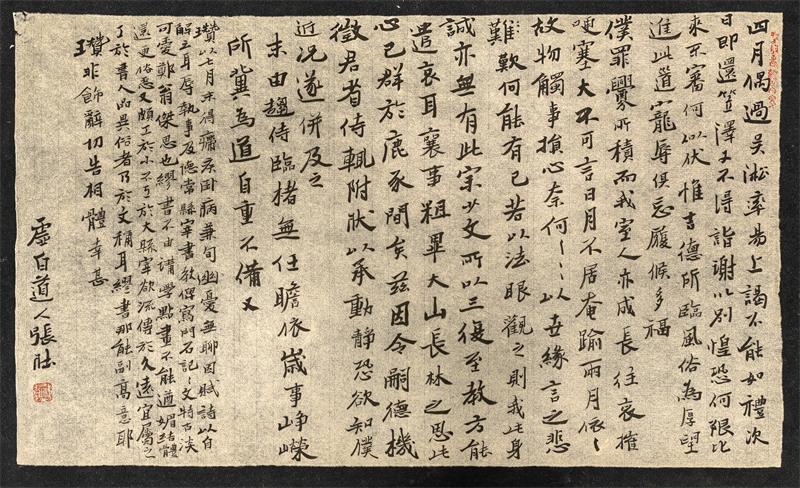 四月偶過吳淞率易上謁不能如禮次
日即還笠澤又不得詣謝以別惶恐何限比
來不審何以伏惟吉德所臨風俗為厚望
進此道寵辱俱忘履候多福
僕罪舋所積而我室人亦成長往哀摧
哽塞大不可言日月不居奄踰兩月依〻
故物觸事損心奈何〻〻以世緣言之悲
難歎何能有已若以法眼觀之則我此身
誠亦無有此宗少文所以三復至教方能
遣哀耳襄事粗畢大山長林之思此
心已群於鹿豕間矣茲因令嗣德機
徵君省侍輒附狀以承動靜恐欲知僕
近況遂併及之
未由趨侍臨楮無任瞻依歲事崢嶸
所冀為道自重不備又
以七月末得瘧疾臥病兼旬幽憂無聊因賦諸以自
解三耳辱執事及德常縣宰書教俾寫門石記〻文特古淡
可愛鄭翁傑思也繆書不由講學點畫不能遒媚結體
還更俗惡又頗工於小不工於大縣宰欲流傳於久遠宜屬之
了於書人品異俗者乃於文稱耳繆書那能副高意耶
非飾辭切告相體幸甚
虛白道人張